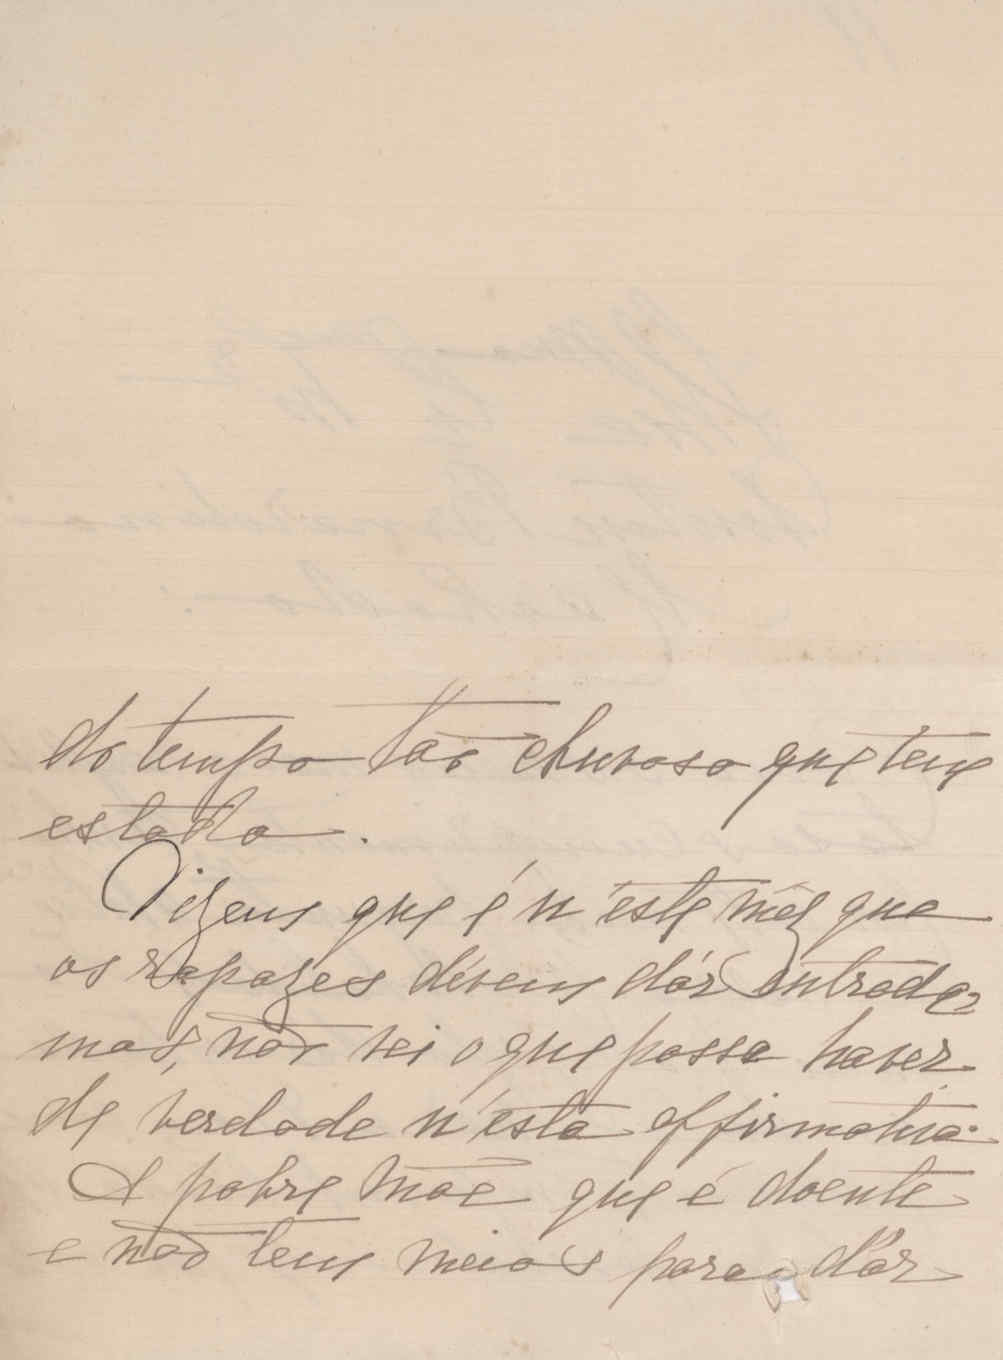 do tempo tão chuvoso que tem
estado.
Dizem que é n'este mêz que
os rapazes dévem dár entrada,
mas, não sei o que possa haver
de verdade n'esta affirmativa.
A pobre mãe que é doente
e não tem meios para dár